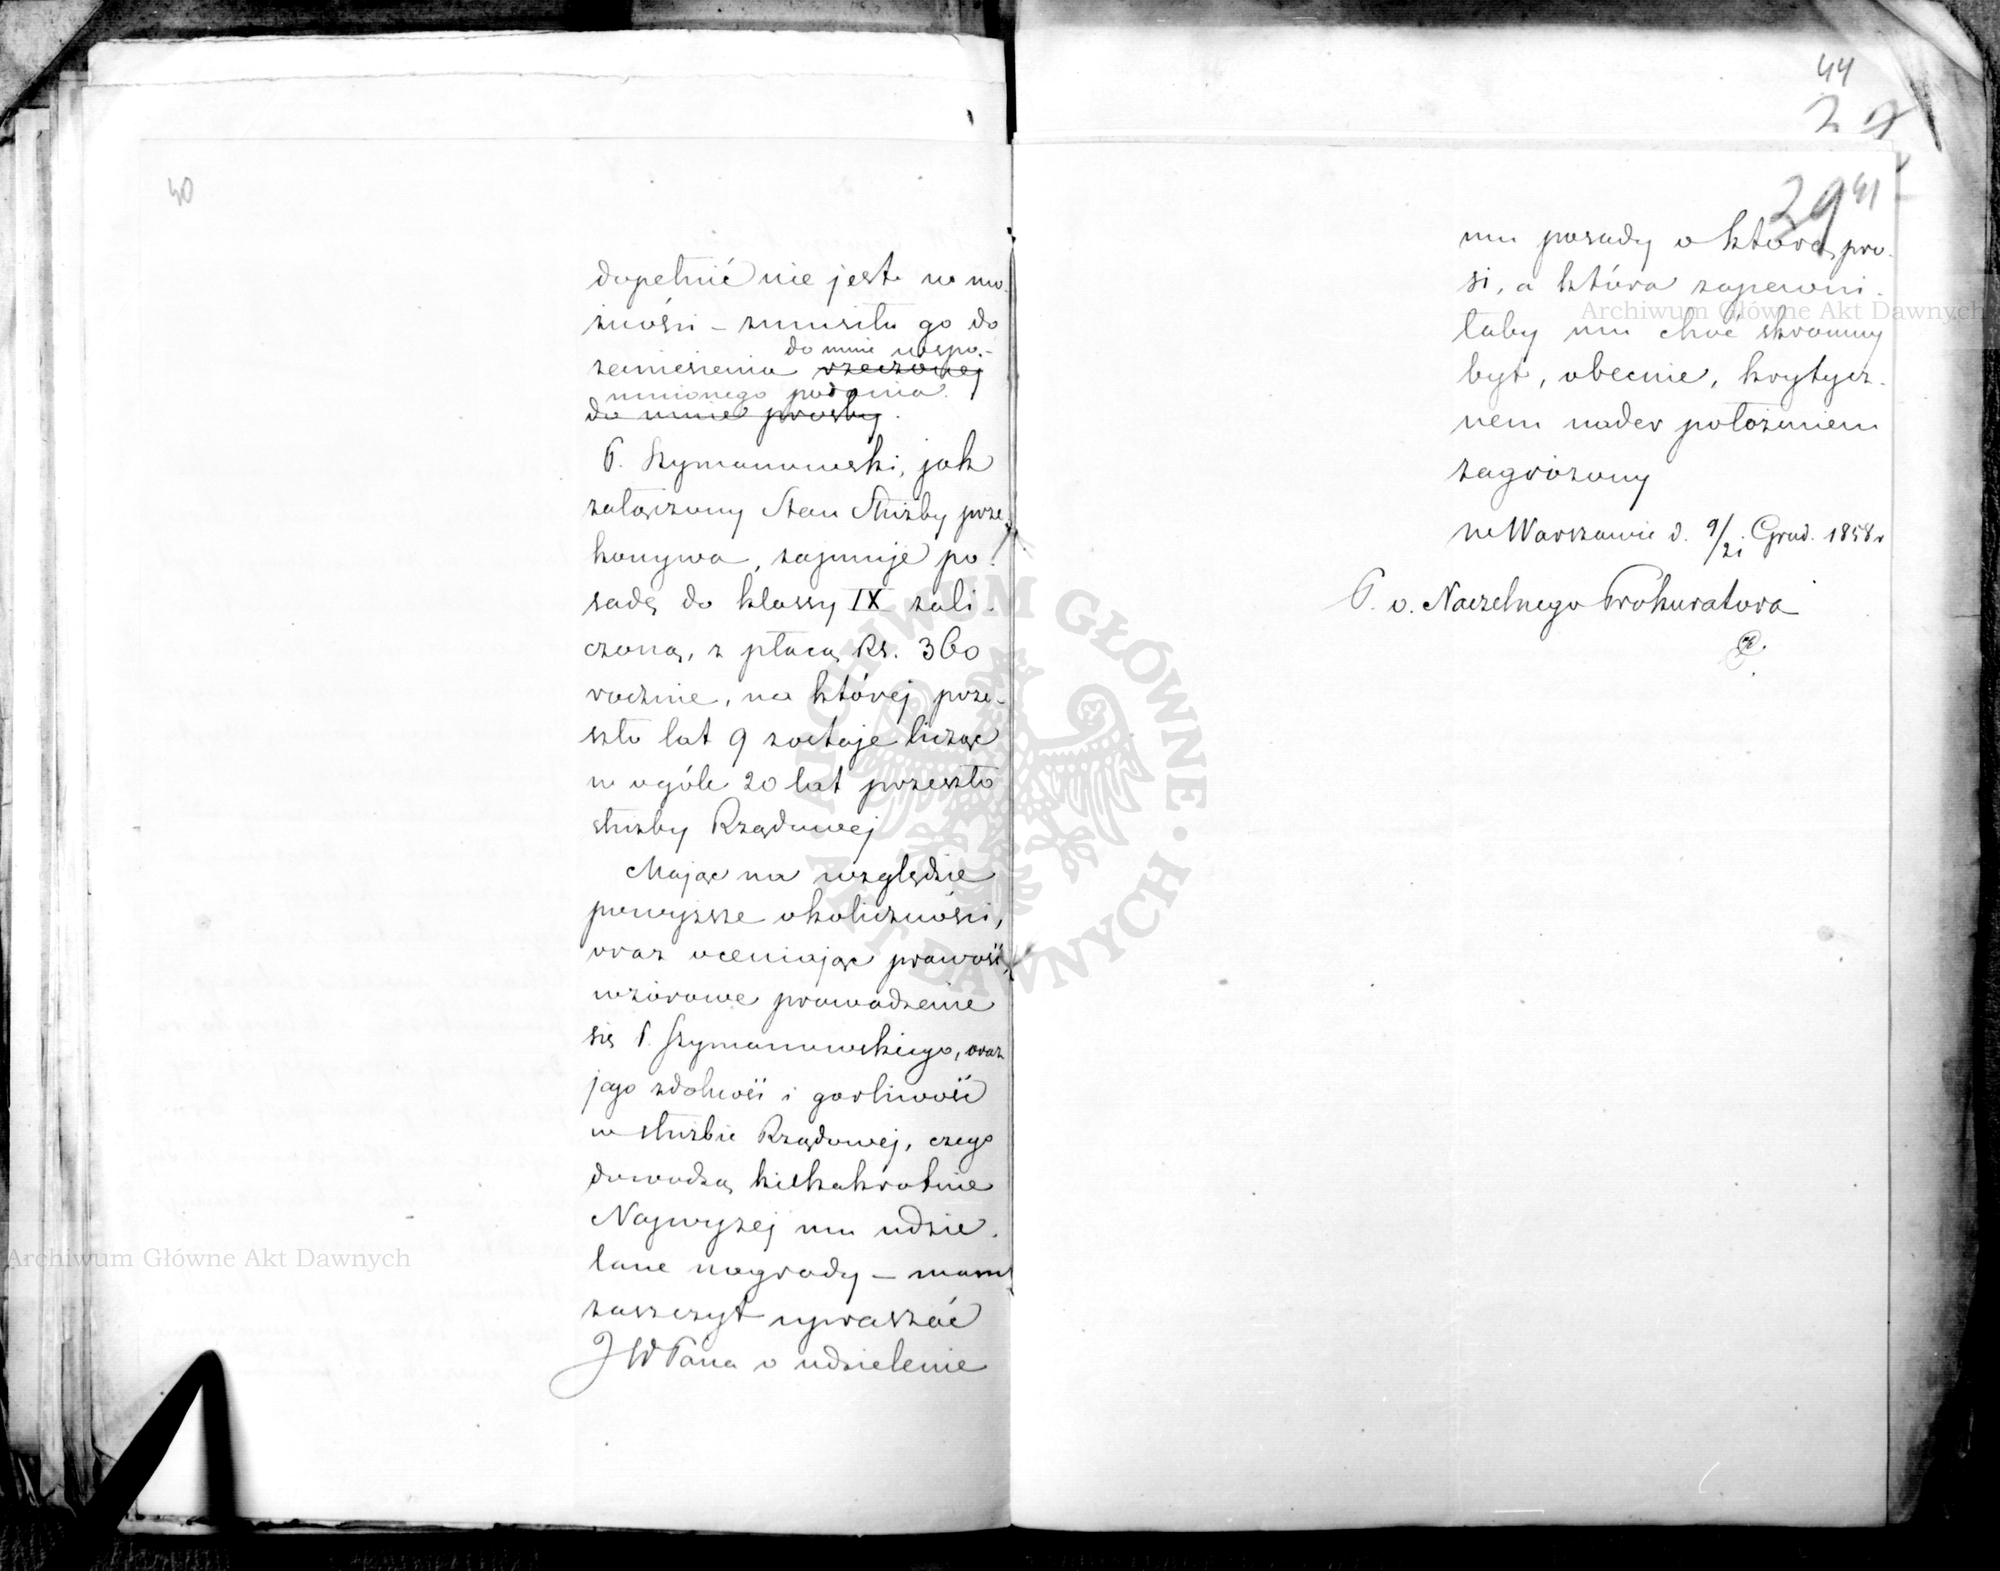 40
dopełnić nie jest w mo-
żności – zmusiła go do
do mnie wspo-
zaniesienia rzeczonej
mnionego podania.
do mnie prośby.
P. Szymanowski, jak
załączony Stan Służby prze-
konywa, zajmuje po-
sadę do klassy IX zali-
czoną, z płacą Rs. 360
rocznie, na której prze-
szło lat 9 zostaje licząc
w ogóle 20 lat przeszło
służby Rządowej
Mając na względzie
powyższe okoliczności,
oraz oceniając prawość,
wzorowe prowadzenie
się P. Szymanowskiego, oraz
jego zdolność i gorliwość
w służbie Rządowej, czego
dowodzą kilkakrotnie
Najwyżej mu udzie-
lane nagrody – mam
zaszczyt upraszać
JW Pana o udzielenie
44
29
29 41
mu posady o którą pro-
si, a która zapewni-
łaby mu choć skromny
byt, obecnie, krytycz-
nem nader położeniem
zagrożony
w Warszawie d. 9/21 Grud. 1858 r
P. o. Naczelnego Prokuratora
Archiwum Główne Akt Dawnych
Archiwum Główne Akt Dawnych
ARCHIWUM GŁÓWNE AKT DAWNYCH